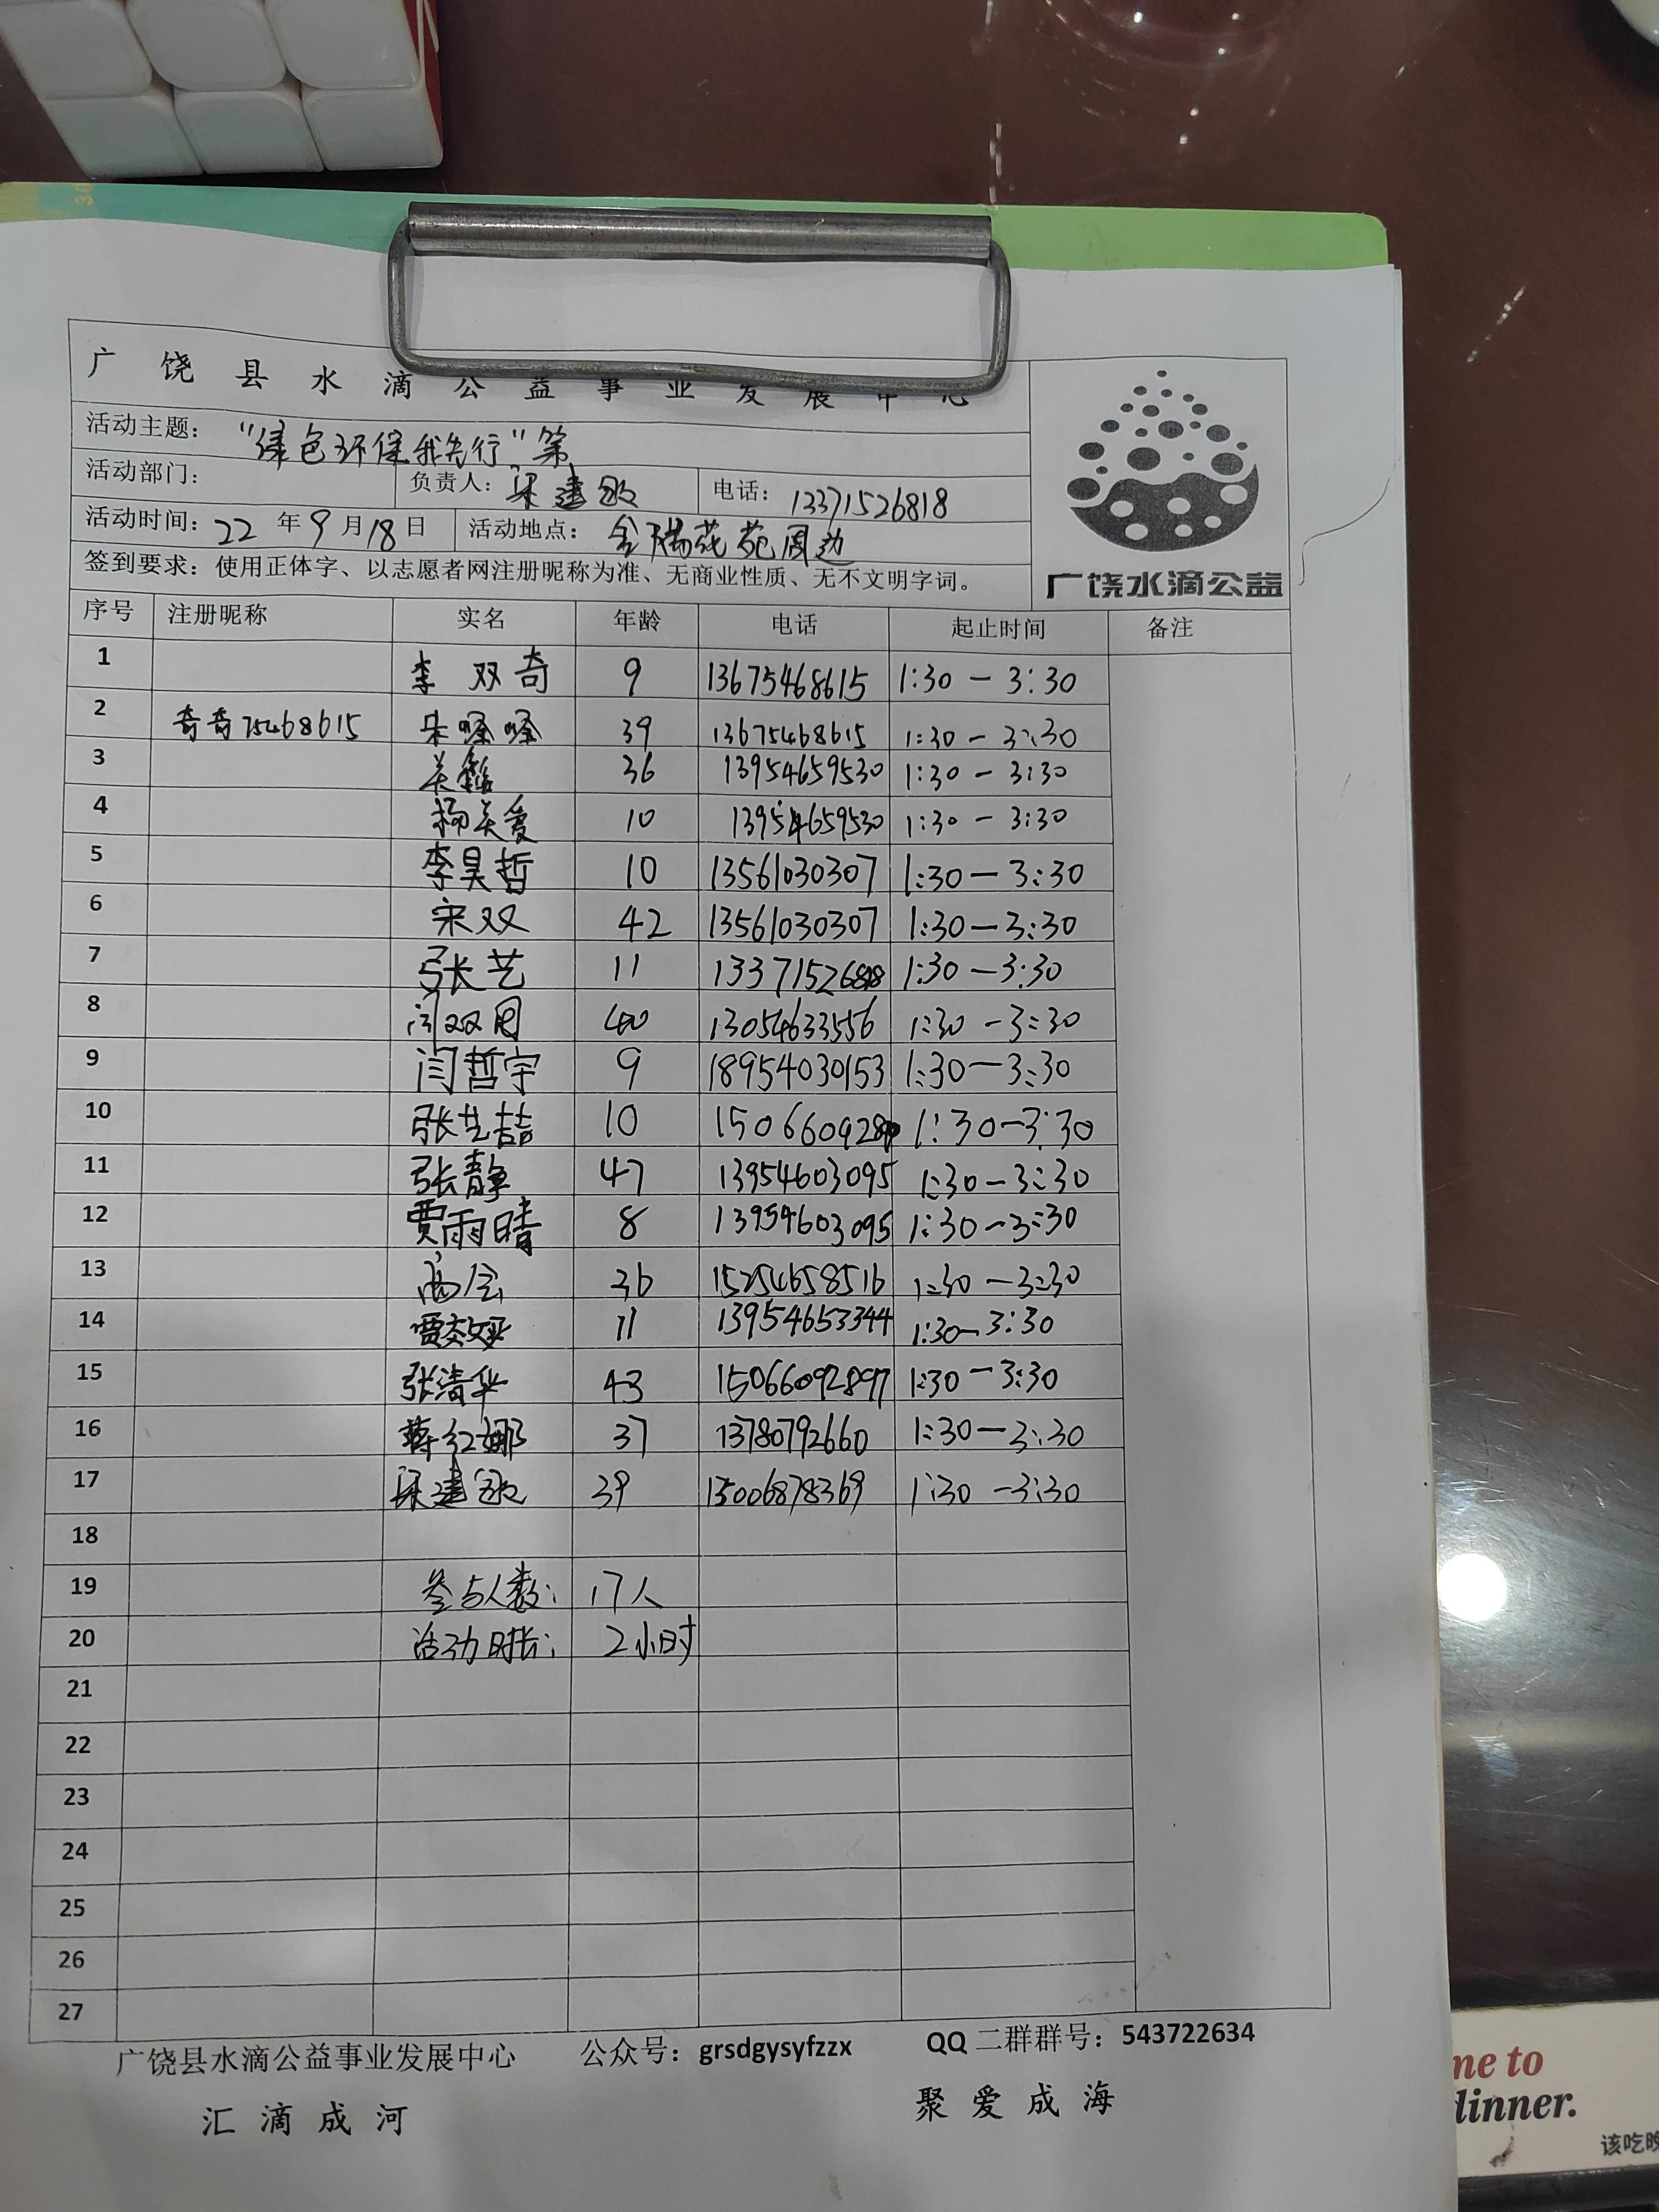 广饶县水滴公益事业发展中心
活动主题: "绿色环保我先行"第
活动部门: 负责人: 梁建敏 电话: 13371526818
活动时间: 22年9月18日 活动地点: 金瑞花苑周边
签到要求: 使用正体字、以志愿者网注册昵称为准、无商业性质、无不文明字词。
广饶水滴公益
序号 注册昵称 实名 年龄 电话 起止时间 备注
1 李双奇 9 13675468615 1:30-3:30
2 奇奇75468615 39 13675468615 1:30-3:30
3 36 13954659530 1:30-3:30
4 杨关爱 10 13954659530 1:30-3:30
5 李昊哲 10 13561030307 1:30-3:30
6 宋双 42 13561030307 1:30-3:30
7 张艺 11 1:30-3:30
8 40 13054633556 1:30-3:30
9 闫哲宇 9 18954030153 1:30-3:30
10 张艺喆 10 1:30-3:30
11 张静 47 13954603095 1:30-3:30
12 贾雨晴 8 13954603095 1:30-3:30
13 36 15254658516 1:30-3:30
14 11 13954653344 1:30-3:30
15 张清华 43 15066092897 1:30-3:30
16 蒋红娜 37 13780792660 1:30-3:30
17 梁建敏 39 15006878369 1:30-3:30
18
19 参与人数: 17人
20 活动时长: 2小时
21
22
23
24
25
26
27
广饶县水滴公益事业发展中心 公众号: grsdgysyfzzx QQ二群群号: 543722634
汇滴成河 聚爱成海
me to
dinner.
该吃晚